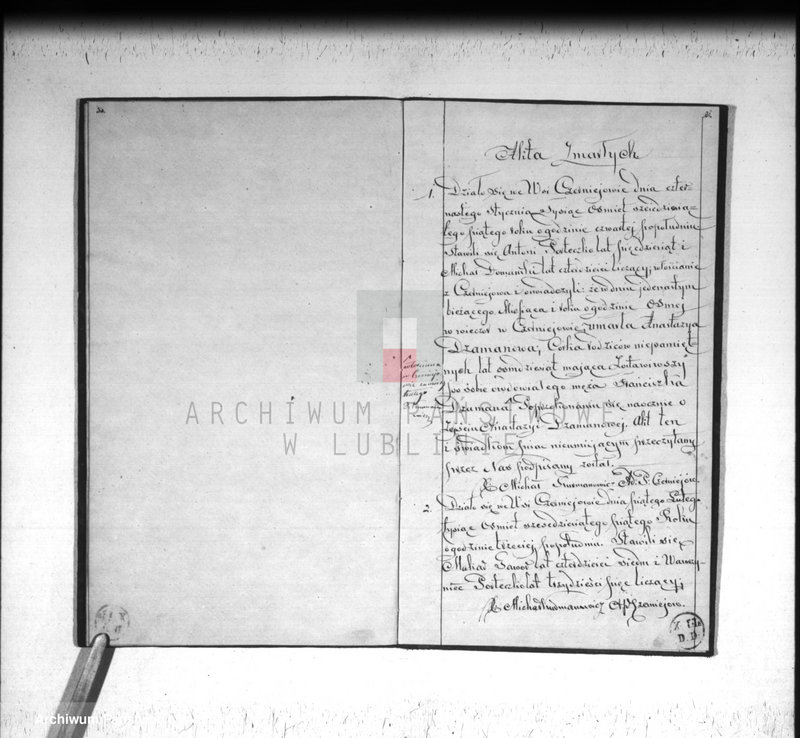 Akta Zmarłych
1. Działo się we Wsi Czerniejowie dnia czter
nastego Stycznia tysiąc ośmset sześćdziesią-
tego piątego roku o godzinie czwartej popołudniu
Stawili się Antoni Posteczko lat pięćdziesiąt i
Michał Domański lat czterdzieści liczący, włościanie
z Czerniejowa i oświadczyli: że w dniu jedenastym
bieżącego Miesiąca i roku o godzinie Osmej
w wieczor w Czerniejowie, umarła Anastazya
Dzamanowa, Corka rodziców niepamięt-
nych lat osmdziesiąt mająca Zostawiwszy
po sobie owdowiałego męża Franciszka
Dzamana. Poprzekonaniu się naocznie o
Zejściu Anastazyi Dzamanowej. Akt ten
świadkom pisać nieumiejącym przeczytany
przez Nas podpisany został.
X Michał
2. Działo się we Wsi Czerniejowie dnia piątego Lutego
tysiąc ośmset sześćdziesiątego piątego Roku
o godzinie trzeciej popołudniu. Stawili się
Michał Gawor lat czterdzieści siedm i Wawrzy-
niec Posteczko lat trzydzieści pięć liczący;
X Michał
ARCHIWUM PAŃSTWOWE
W LUBLINIE
Archiwum